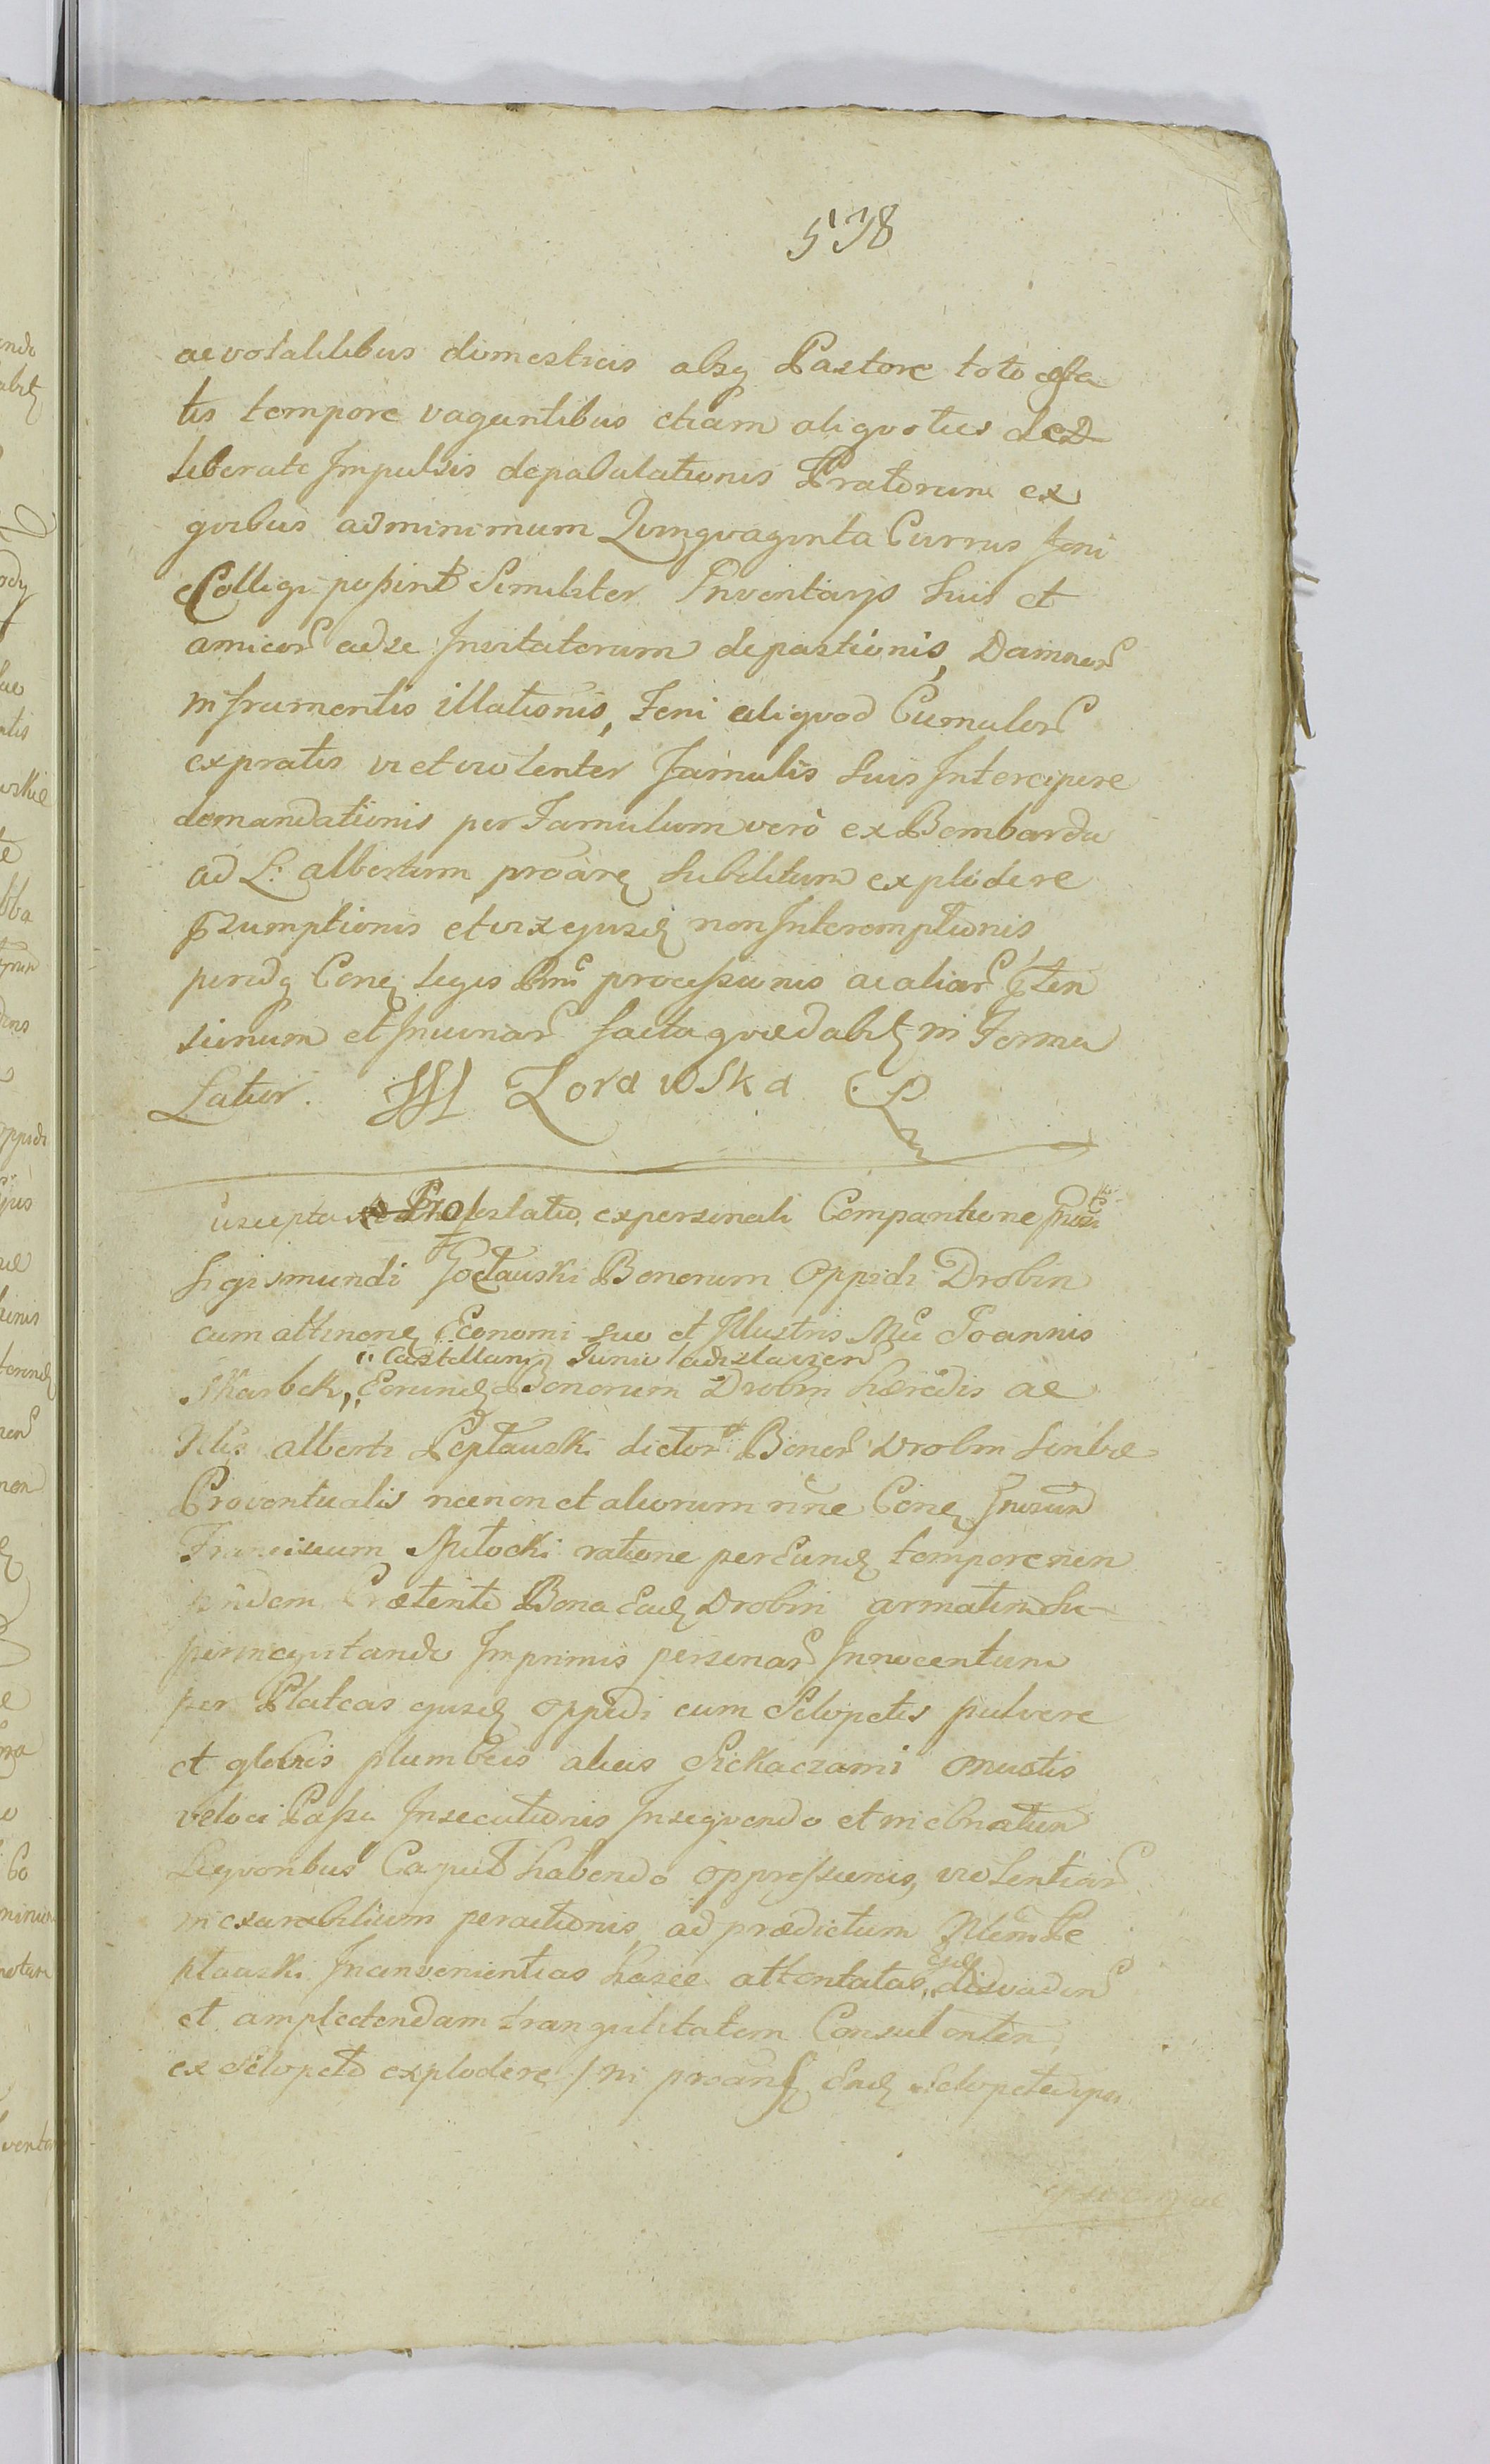 538
ac volatilibus domesticis absq Pastore toto esta
tis tempore vagantibus etiam aliquoties de
liberate Impulsis depabulationis Pratorum ex
quibus adminimum Quinquaginta Currus feni
Colligi possint Similiter Inventarys suis et
amicor adse Invitatorum depastionis, Damnor
in frumentis illationis, Feni aliquod Cumulor
expratis vi et violenter famulis suis Intercipere
demandationis per Famulum verò ex Bombarda
ad L: albertum subditum explodere
sumptionis et vix ejusd non Interemptionis
Conq legis processionis ac aliar ten
sionum et facta quaedabit in Forma
Latior. Zorawska
uscepta Protestatio, expersonali Comparitione
Sigismundi Gocłauski Bonorum Oppidi Drobin
cum attinenq Economi suo et Illustris Mci Joannis
Castellani Juniwladislavien
Skarbek, Eorund Bonorum Drobin haeredis ac
Nlis alberti Peptauski dictor Bonor Drobin Scribae
Proventualis necnon et aliorum nne Conq
Franciscum Miłocki ratione per Eund tempore non
pridem Praeterito Bona Ead Drobin armatim Su
perinequitando Imprimis personar Innocentum
per Plateas ejusd oppidi cum Sclopetis pulvere
et globis plumbeis alias Siekaczami onustis
veloci Passu Insecutionis Insequendo et inebriatum
Liquoribus Caput habendo oppressionis, violentiar
inexarabilium peractionis, ad praedictum Nlem Pe
ptauski Inconvenientias hasce attentatas, disvaden
et amplectendam tranquilitatem Consulenten,
ex Sclopeto explodere,